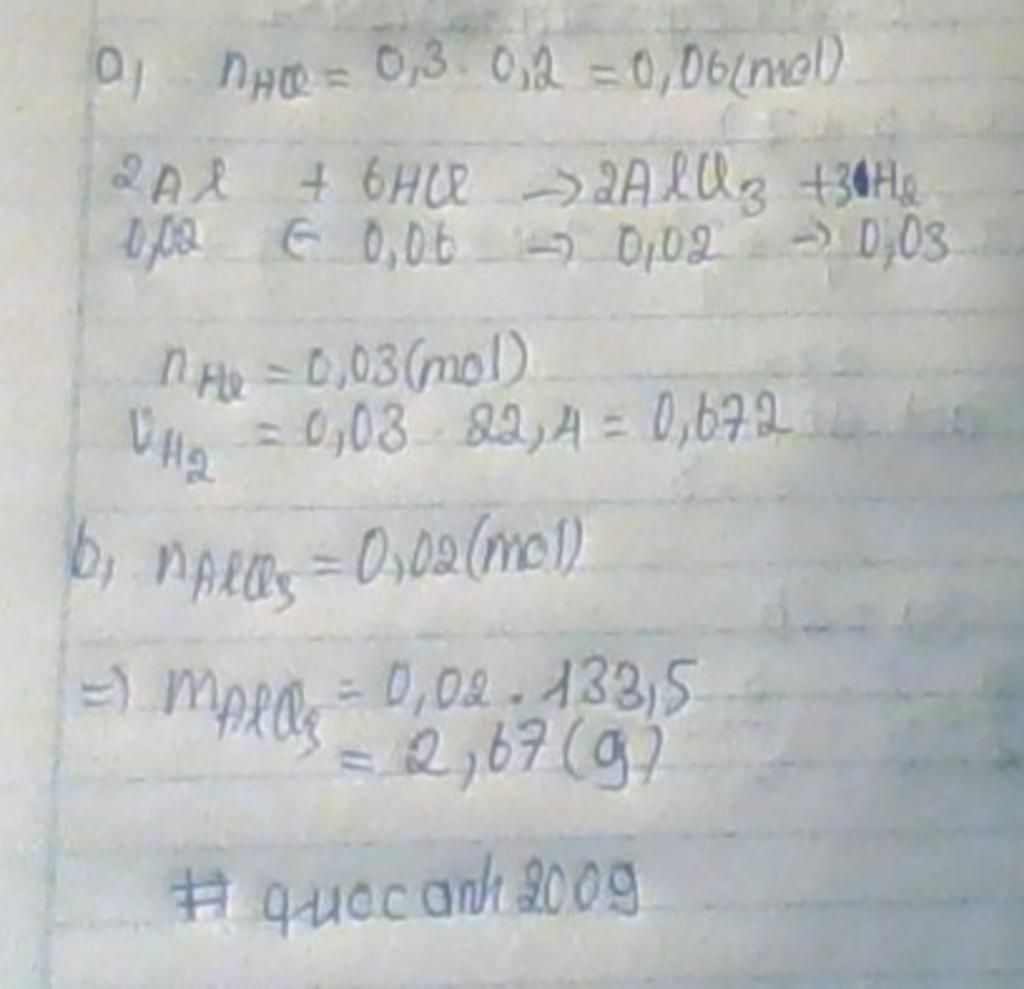 a, nHCl = 0,3 . 0,2 = 0,06 (mol)
2Al + 6HCl → 2AlCl3 + 3H2
0,02 ← 0,06 → 0,02 → 0,03
nH2 = 0,03 (mol)
VH2 = 0,03 . 22,4 = 0,672
b, nAlCl3 = 0,02 (mol)
=> mAlCl3 = 0,02 . 133,5
= 2,67 (g)
# quocanh2009